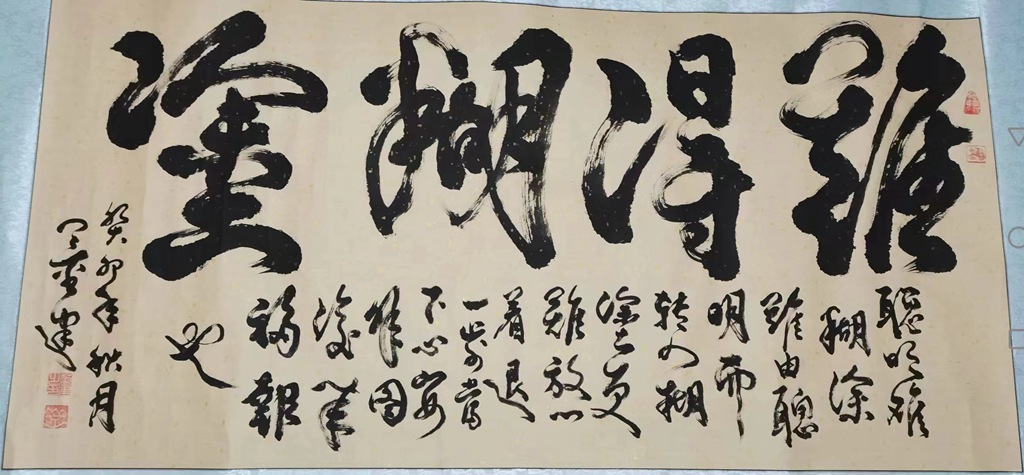 難得糊塗
聰明難
糊涂
難由聰
明而
轉入糊
塗更
難放一
着退
一步當
下心安
非圖
後來
福報
也
癸卯年秋月